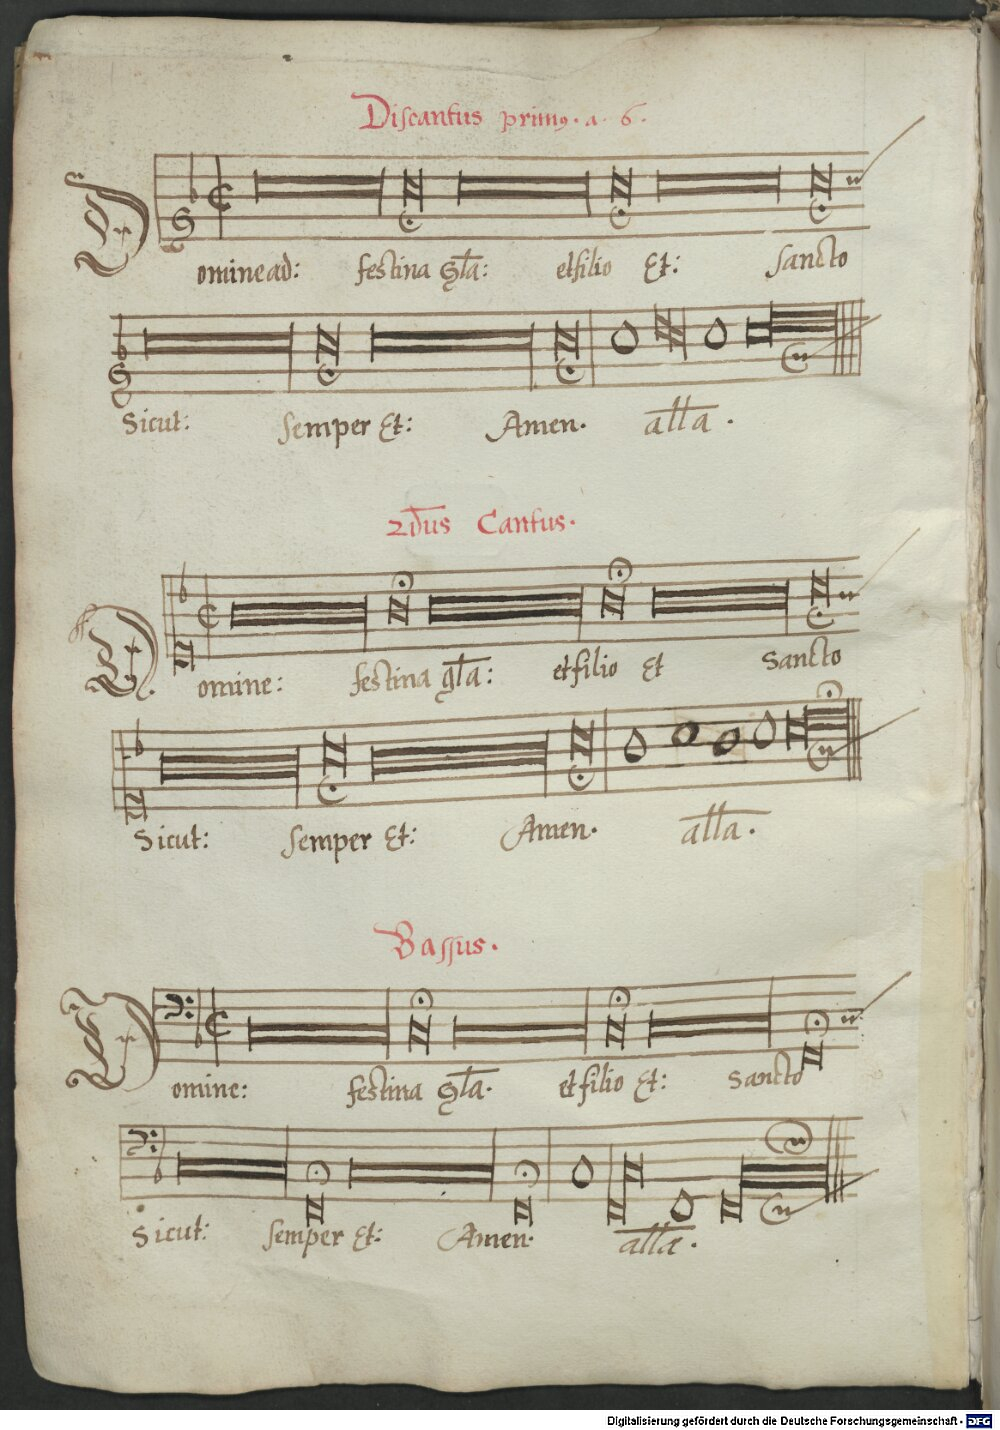 Discantus primꝰ. a. 6.
Domine ad: festina Gl̄a: et filio Et: Sancto
Sicut: semper Et: Amen. all̄a.
2dūs Cantus.
Domine: festina gl̄a: et filio Et Sancto
Sicut: semper Et: Amen. all̄a.
Bassus.
Domine: festina Gl̄a. et filio Et: Sancto
Sicut: semper Et: Amen. all̄a.
Digitalisierung gefördert durch die Deutsche Forschungsgemeinschaft - DFG